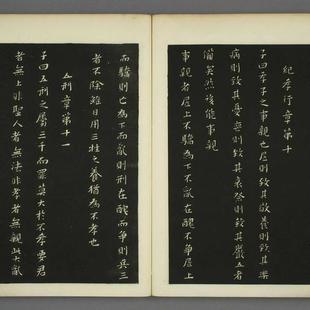 紀孝行章第十
子曰孝子之事親也居則致其敬養則致其樂
病則致其憂喪則致其哀祭則致其嚴五者
備矣然後能事親
事親者居上不驕為下不亂在醜不爭居上
而驕則亡為下而亂則刑在醜而爭則兵三
者不除雖日用三牲之養猶為不孝也
五刑章第十一
子曰五刑之屬三千而罪莫大於不孝要君
者無上非聖人者無法非孝者無親此大亂